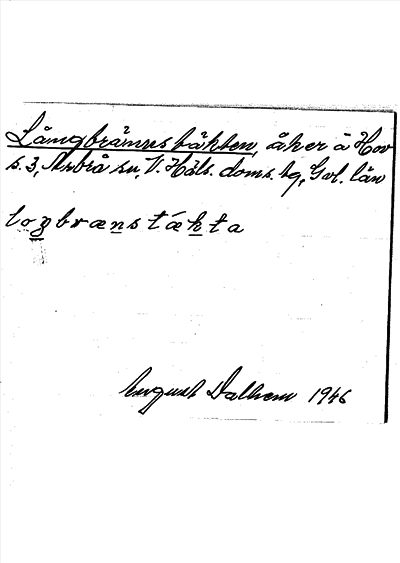 Långbrännstäkten, åker å Hov
s. 3, Arbrå sn, V. Häls. doms. tg, Gvl. län
lozbrænstækta
August Dalhem 1946